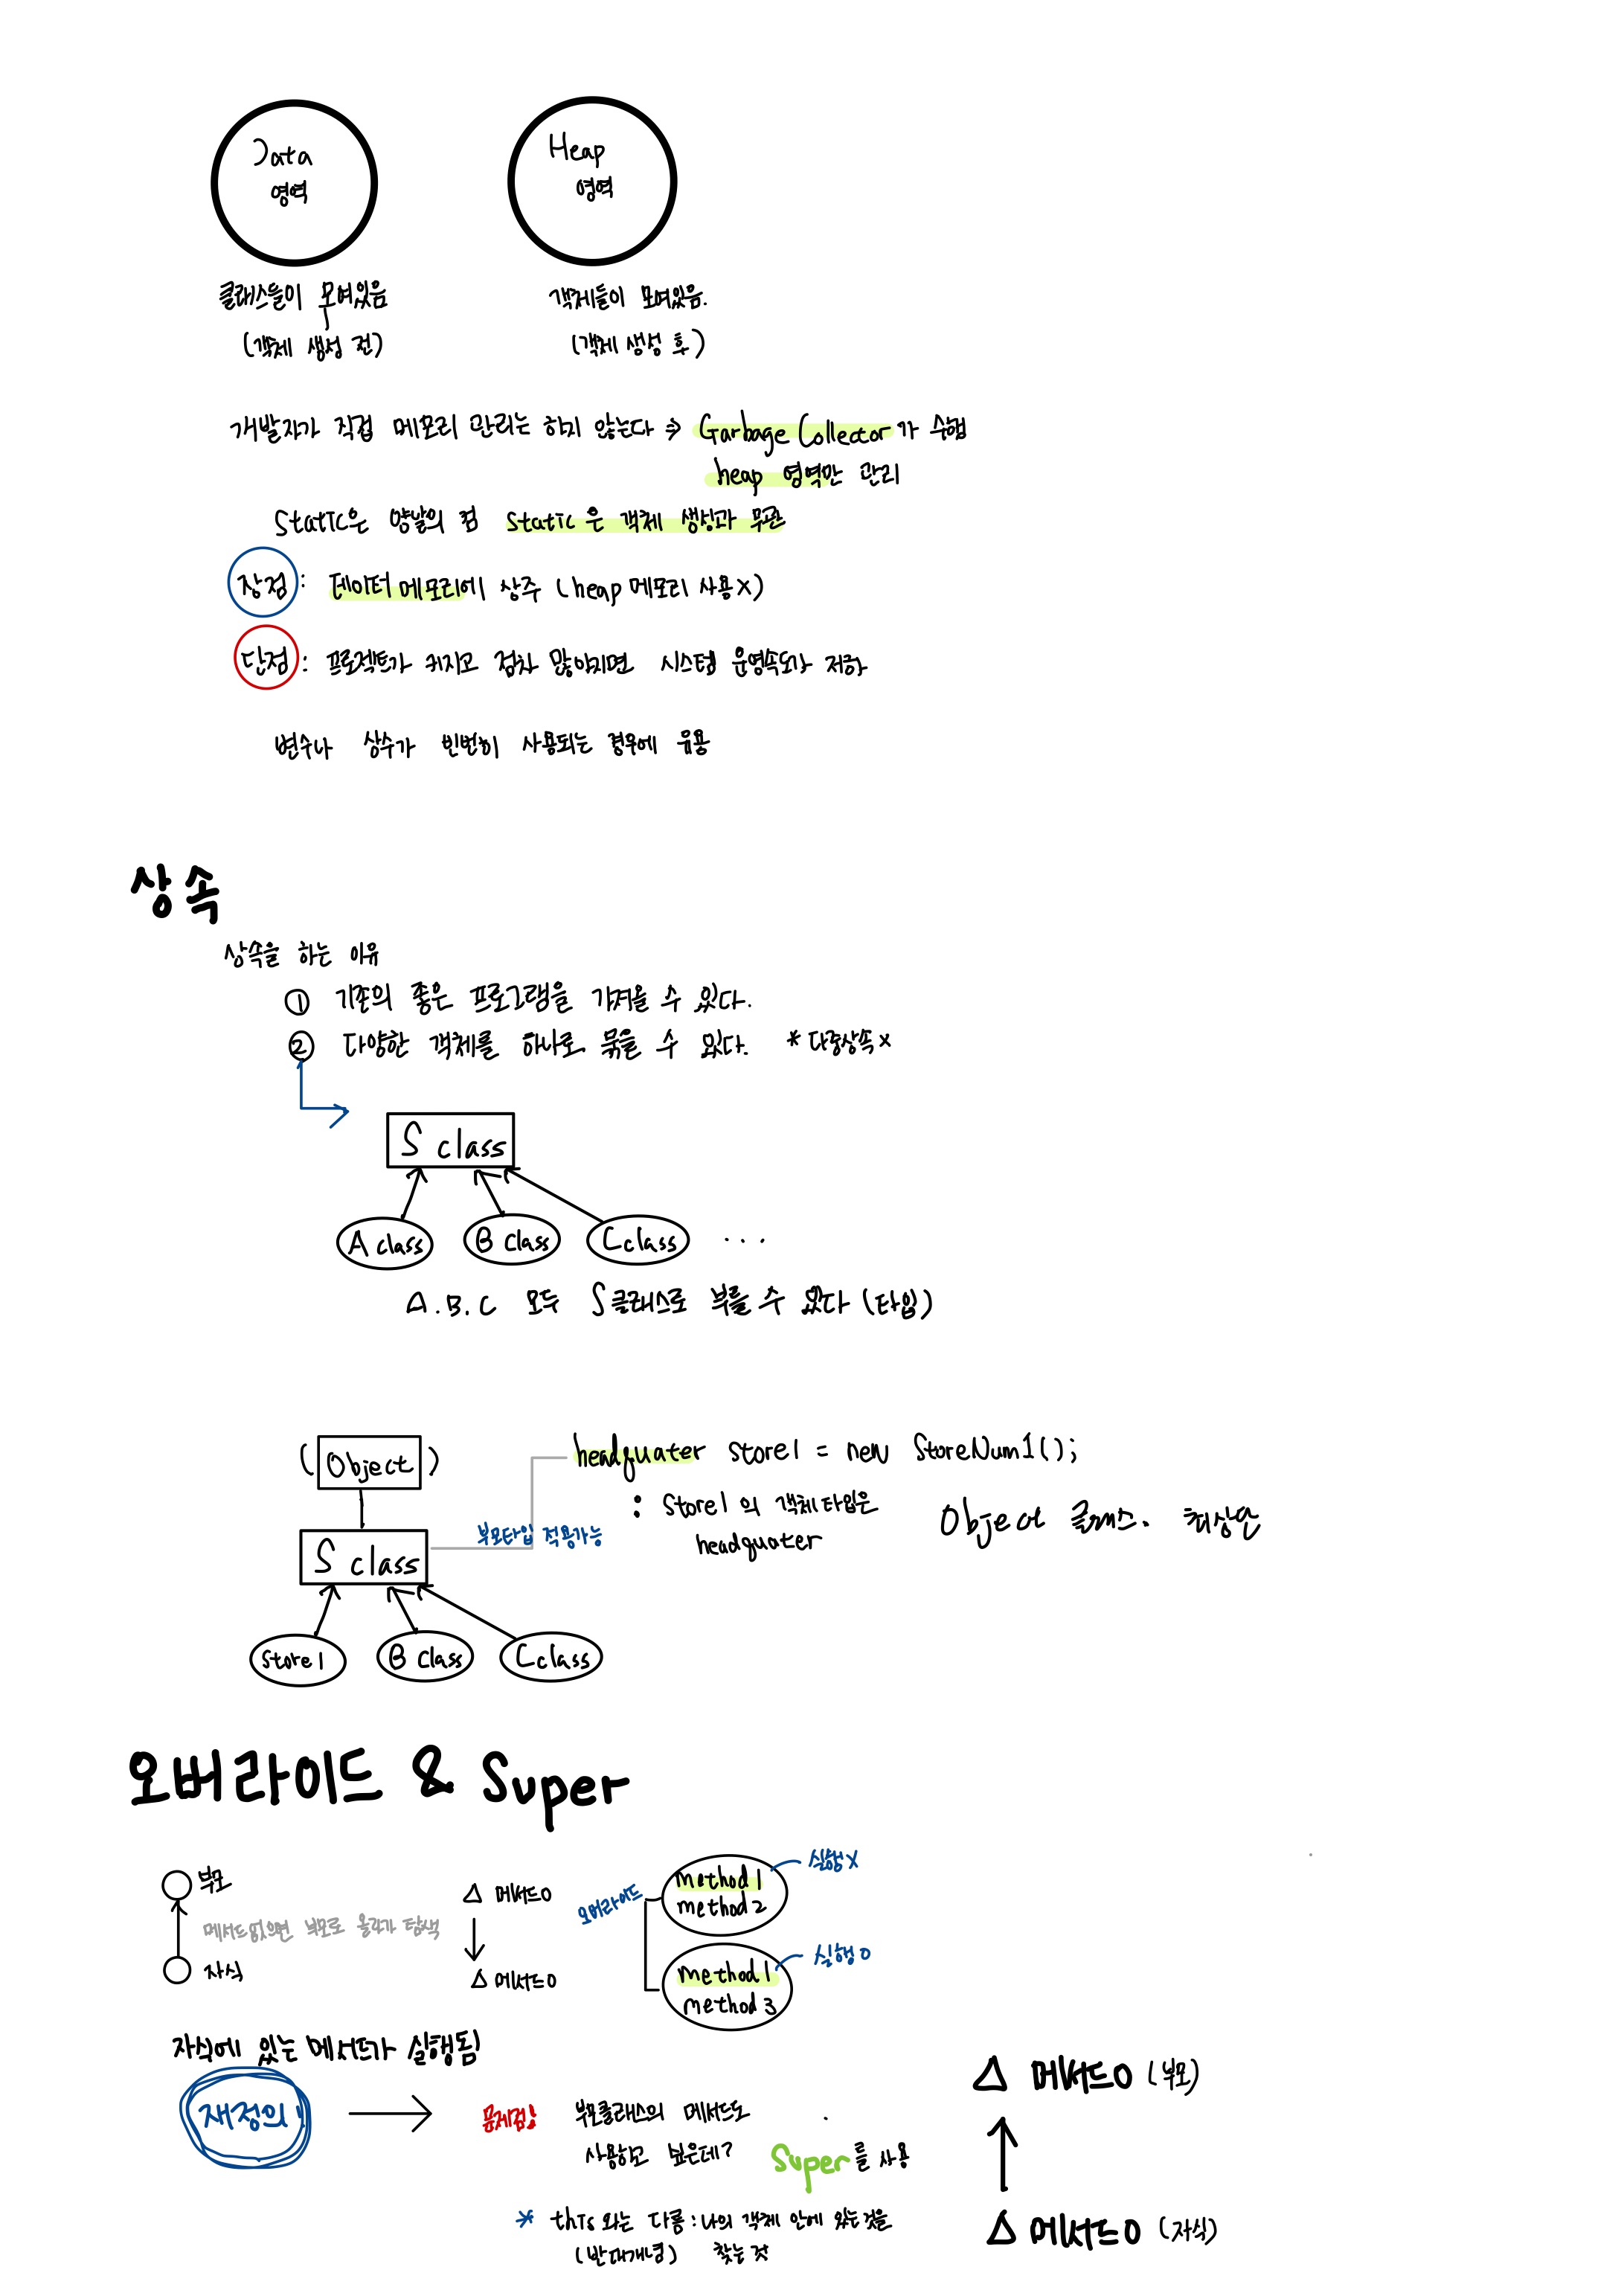 Data
영역
Heap
영역
클래스들이 모여있음
(객체 생성 전)
객체들이 모여있음.
(객체 생성 후)
개발자가 직접 메모리 관리는 하지 않는다 ⇒ Garbage Collector가 수행
heap 영역만 관리
static은 양날의 검 static은 객체 생성과 무관
장점 : 데이터 메모리에 상주 (heap 메모리 사용x)
단점 : 프로젝트가 커지고 점차 많아지면 시스템 운영속도가 저하
변수나 상수가 빈번히 사용되는 경우에 유용
상속
상속을 하는 이유
① 기존의 좋은 프로그램을 가져올 수 있다.
② 다양한 객체를 하나로 묶을 수 있다. * 다중상속x
S class
A class B class C class ...
A.B.C 모두 S클래스로 부를 수 있다 (타입)
(Object)
headquater store1 = new StoreNum1();
: Store1의 객체타입은
headquater
Object 클래스. 최상단
부모타입 적용가능
S class
Store1 B class C class
오버라이드 & Super
부모
메서드없으면 부모로 올라가 탐색
자식
△ 메서드O
△ 메서드O
오버라이드
method1
method2
실행X
method1
method3
실행O
자식에 있는 메서드가 실행됨!
재정의!
문제점!
부모클래스의 메서드도
사용하고 싶은데? Super를 사용
* this와는 다름 : 나의 객체 안에 있는 것을
(반대개념) 찾는 것
△ 메서드O (부모)
△ 메서드O (자식)